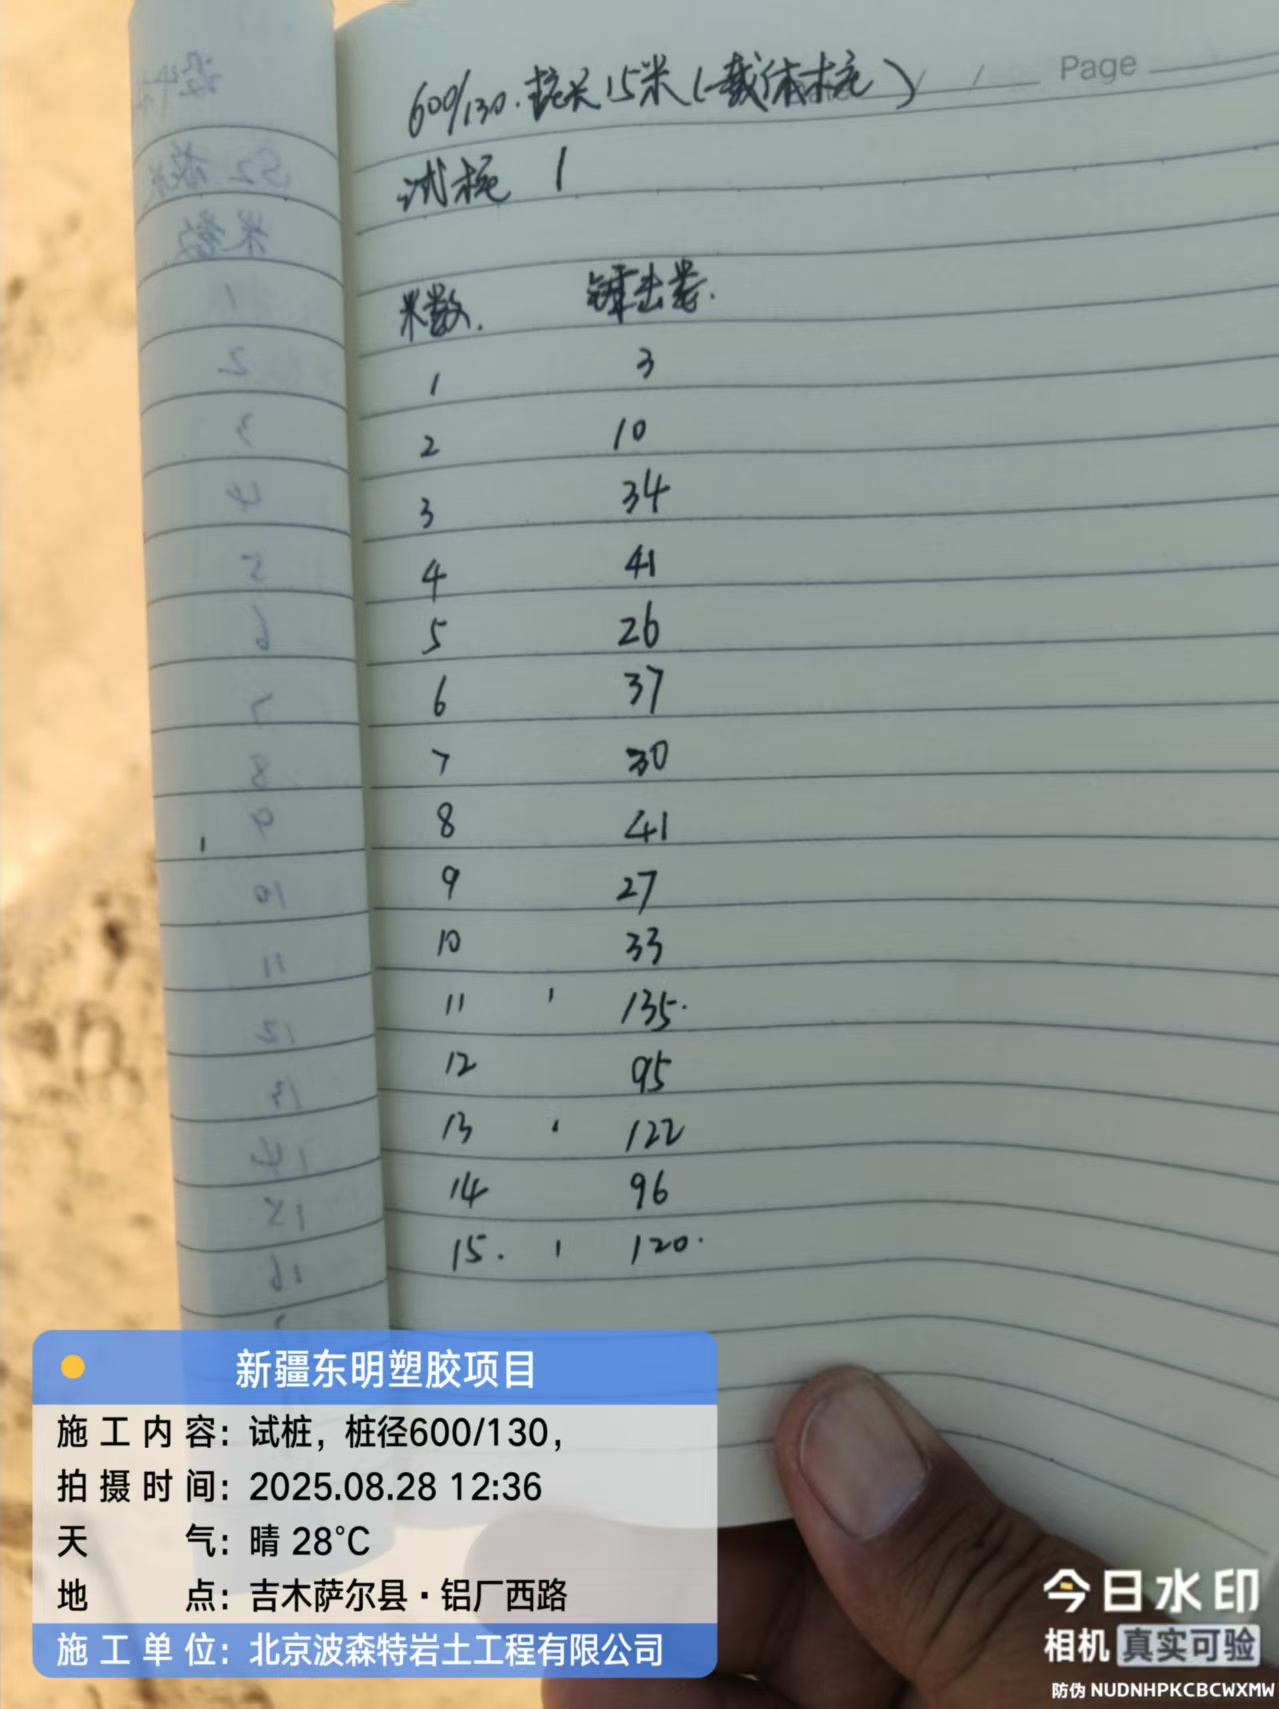 Page
600/130.桩长15米(载体桩)
试桩 1
米数. 锤击数.
1 3
2 10
3 34
4 41
5 26
6 37
7 30
8 41
9 27
10 33
11 135.
12 95
13 122
14 96
15. 120.
新疆东明塑胶项目
施工内容：试桩，桩径600/130，
拍摄时间：2025.08.28 12:36
天气：晴 28℃
地点：吉木萨尔县·铝厂西路
施工单位：北京波森特岩土工程有限公司
今日水印
相机 真实可验
防伪 NUDNHPKCBCWXMW